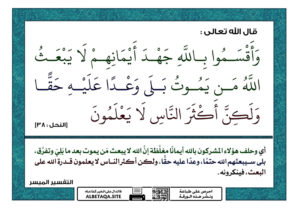 قال الله تعالى :
وَأَقْسَمُوا بِاللَّهِ جَهْدَ أَيْمَانِهِمْ لَا يَبْعَثُ
اللَّهُ مَن يَمُوتُ بَلَى وَعْدًا عَلَيْهِ حَقًّا
وَلَكِنَّ أَكْثَرَ النَّاسِ لَا يَعْلَمُونَ
(النحل: ٣٨)
أي وحلف هؤلاء المشركون بالله أيمانًا مغلَّظة أن الله لا يبعث مَن يموت بعد ما بَلِيَ وتفرَّق،
بلى سيبعثهم الله حتمًا، وعدًا عليه حقًا، ولكن أكثر الناس لا يعلمون قدرة الله على
البعث، فينكرونه.
التفسير الميسر
احرص على طباعة
ونشر هذه الورقة
ALBETAQA.SITE